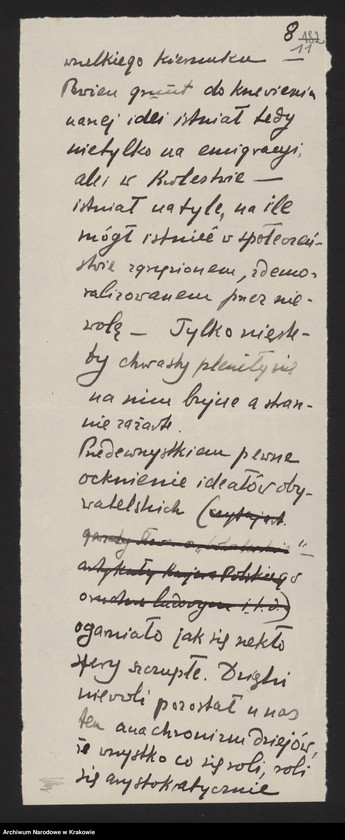 8
182
11
wszelkiego kierunku —
Pewien grunt do krzewienia
naszej idei istniał tedy
nietylko na emigracyi,
ale i w Królestwie —
istniał na tyle, na ile
mógł istnieć w społeczeń-
stwie zgnębionem, zdemo-
ralizowanem przez nie-
wolę — Tylko niestety
by chwasty pleniły się
na nim bujne a stan-
nie zażarte.
Przedewszystkiem pewne
ocknienie ideałów oby-
watelskich (
artykuły Kuryera Polskiego
o ludowym i.t.d.)
ogarniało jak się rzekło
sfery szczupłe. Dzięki
niewoli pozostał u nas
ten anachronizm dziejów,
że wszystko co się roli, roli
się arystokratycznie
Archiwum Narodowe w Krakowie